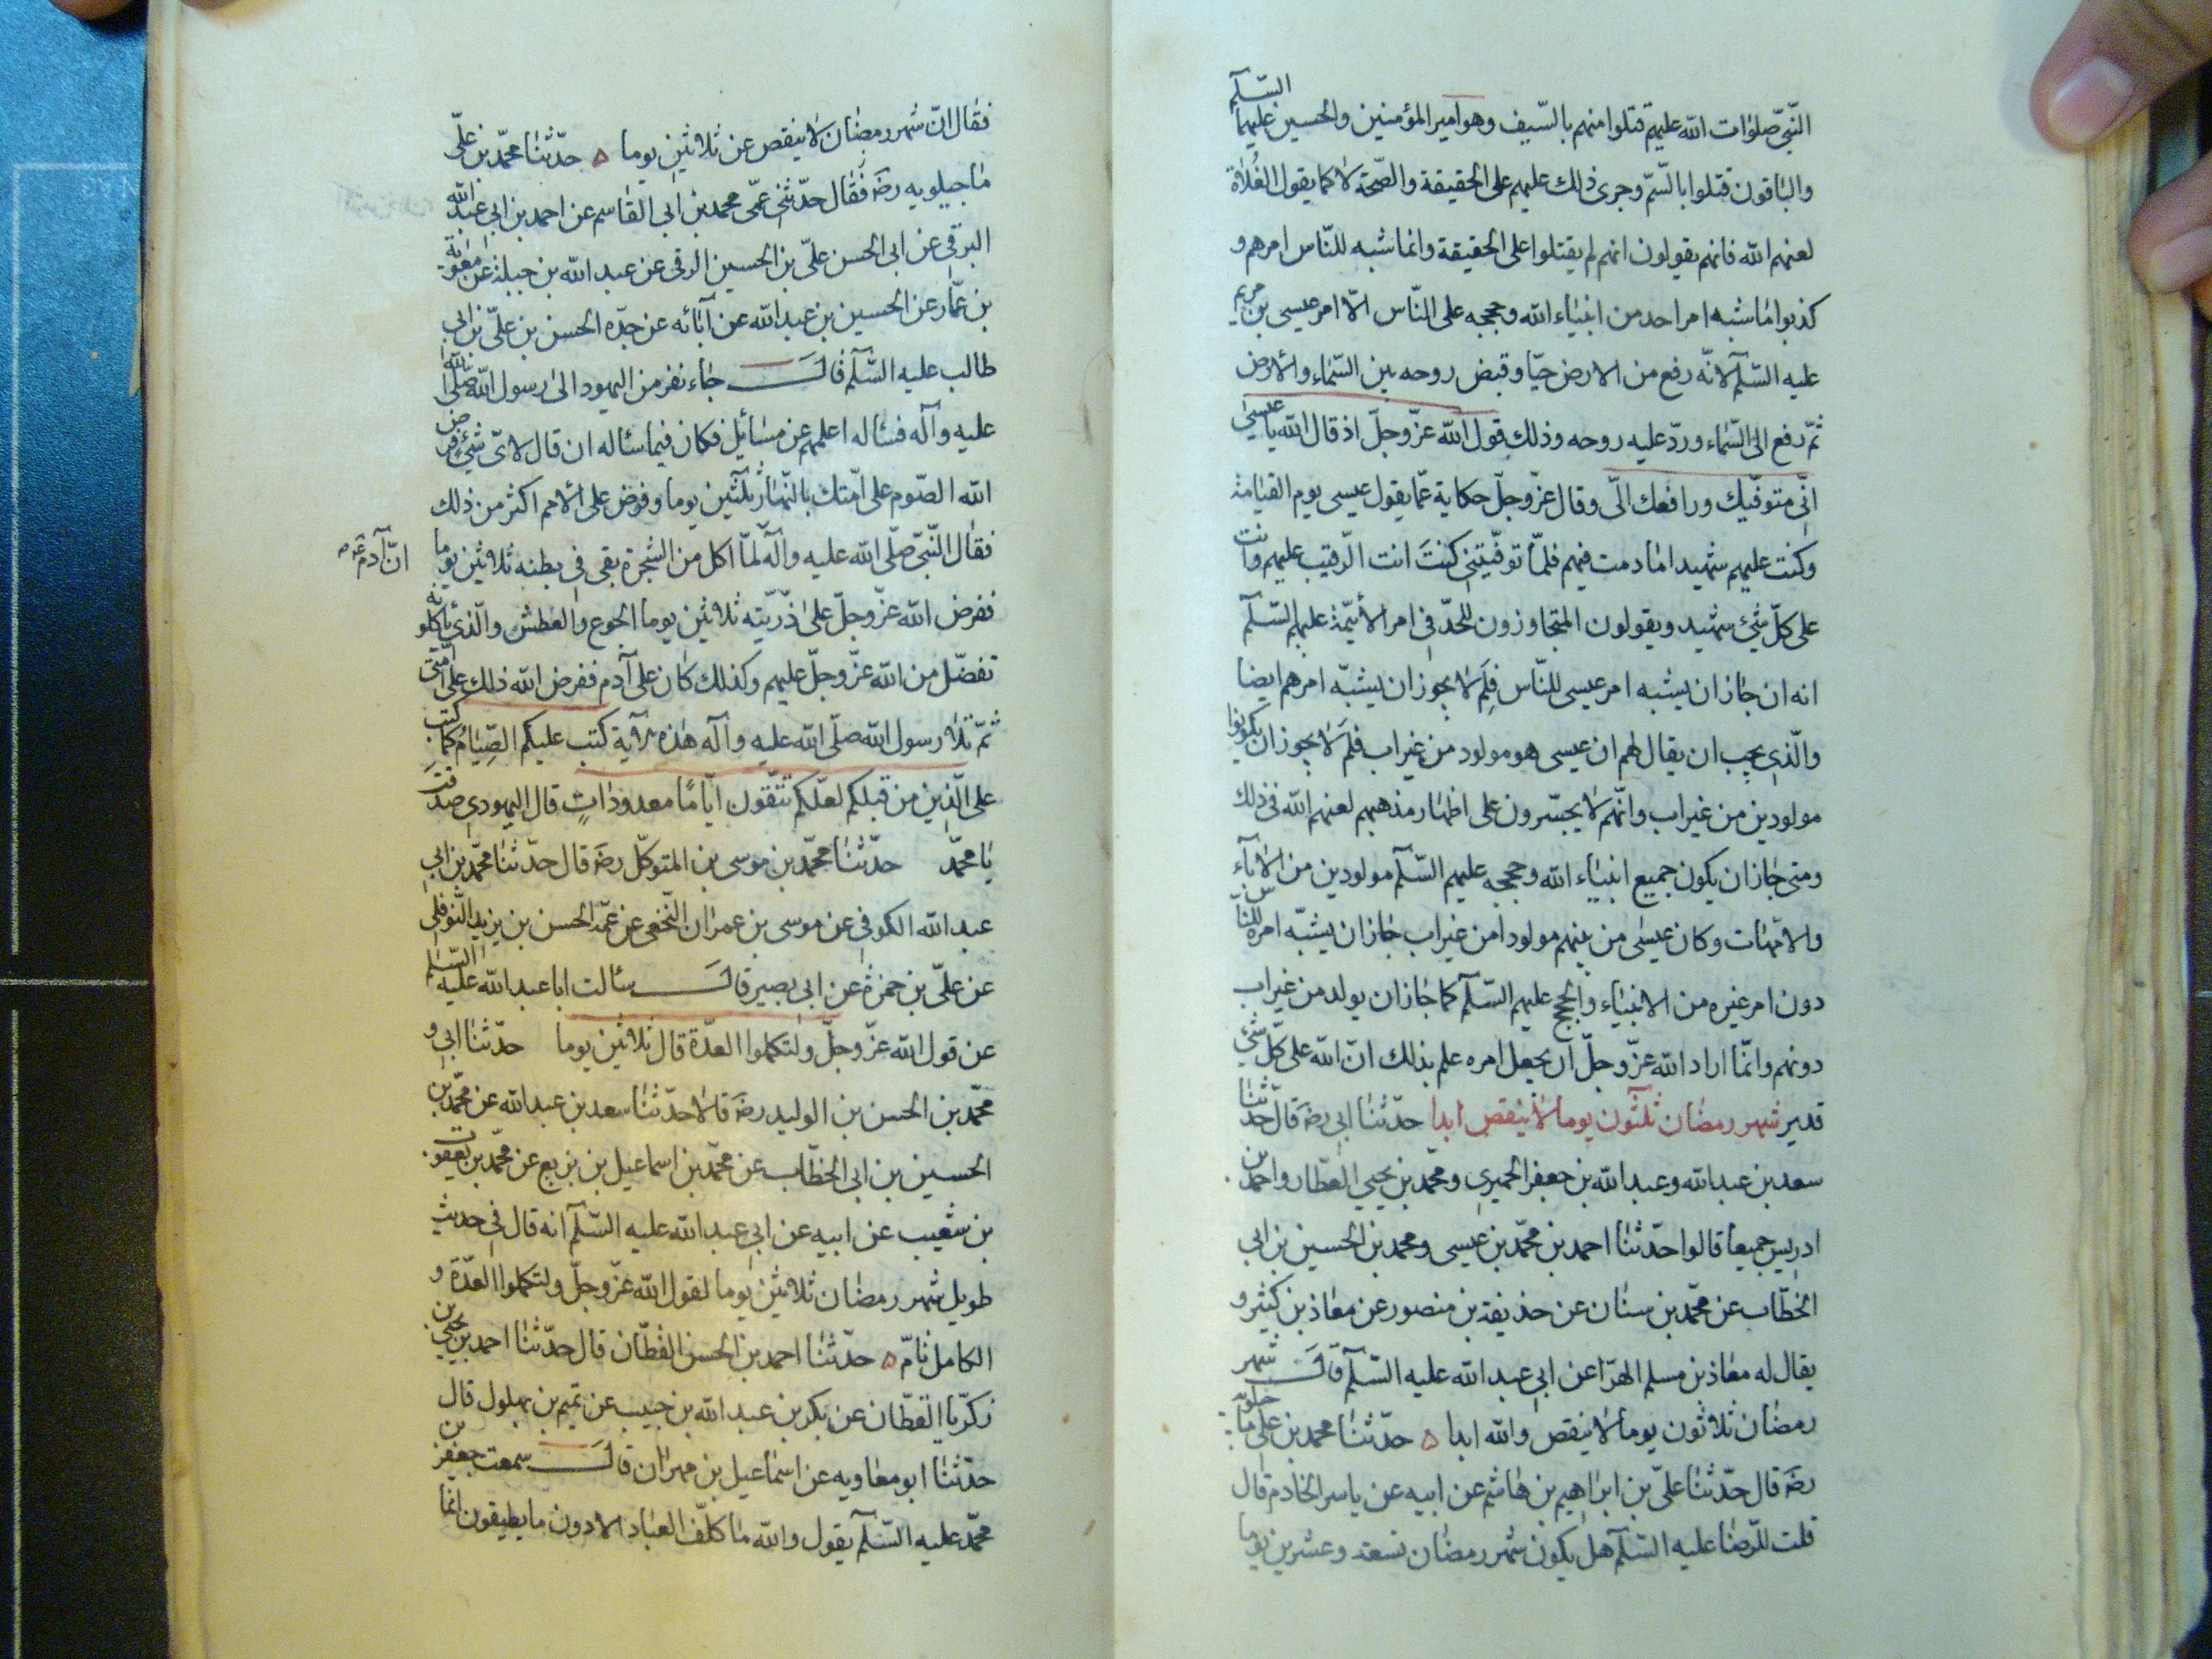 النّبيّ صلوات الله عليهم قتلوا منهم بالسّيف وهو امير المؤمنين والحسين عليهما السّلم
والباقون قتلوا بالسّم وجرى ذلك عليهم على الحقيقة والصّحة لا كما يقول الغُلاة
لعنهم الله فانهم يقولون انهم لم يقتلوا على الحقيقة وانما شبه للنّاس امرهم و
كذبوا ما شبه امر احد من انبياء الله وحججه على النّاس الّا امر عيسى بن مريم
عليه السّلم لانّه رفع من الارض حيّا وقبض روحه بين السّماء والارض
ثمّ رفع الى السّماء وردّ عليه روحه وذلك قول الله عزّ وجلّ اذ قال الله يا عيسى
انّى متوفّيك ورافعك الىّ وقال عزّ وجلّ حكاية عمّا يقول عيسى يوم القيامة
وكنت عليهم شهيدا ما دمت فيهم فلمّا توفّيتنى كنتَ انت الرّقيب عليهم وانت
على كلّ شئ شهيد ويقولون المتجاوزون للحدّ فى امر الأئيمّة عليهم السّلم
انه ان جاز ان يشبه امر عيسى للنّاس فلِمَ لا يجوز ان يشبّه امرهم ايضا
والّذى يجب ان يقال لهم ان عيسى هو مولود من غير اب فلمَ لا يجوز ان يكونوا
مولودين من غير اب وانّهم لا يجسّرون على اظهار مذهبهم لعنهم الله فى ذلك
ومتى جاز ان يكون جميع انبياء الله وحججه عليهم السّلم مولودين من الاباء
والامّهات وكان عيسى من بينهم مولودا من غير اب جاز ان يشبّه امره للنّاس
دون امر غيره من الانبياء والحجج عليهم السّلم كما جاز ان يولد من غير اب
دونهم وانّما اراد الله عزّ وجلّ ان يجعل امره علم بذلك انّ الله على كلّ شئ
قدير شهر رمضان ثلثون يوما لا ينقص ابدا حدّثنا ابى رضَ قال حدّثنا
سعد بن عبد الله وعبد الله بن جعفر الحميرى ومحمّد بن يحيى العطّار واحمد بن
ادريس جميعا قالوا حدّثنا احمد بن محمّد بن عيسى ومحمد بن الحسين بن ابى
الخطّاب عن محمّد بن سنان عن حذيفة بن منصور عن معاذ بن كثير و
يقال له معاذ بن مسلم الهرّا عن ابى عبد الله عليه السّلم قال شهر
رمضان ثلاثون يوما لا ينقص والله ابدا ه حدّثنا محمد بن على ماجيلويه
رضَ قال حدّثنا علىّ بن ابراهيم بن هاشم عن ابيه عن ياسر الخادم قال
قلت للرّضا عليه السّلم هل يكون شهر رمضان تسعة وعشرين يوما
فقال انّ شهر رمضان لا ينقص عن ثلاثين يوما ه حدّثنا محمّد بن علّى
ماجيلويه رضَ فقال حدّثنى عمّى محمد بن ابى القاسم عن احمد بن ابى عبد الله
البرقى عن ابى الحسن علىّ بن الحسين الرقى عن عبد الله بن جبلة عن معوية
بن عمّار عن الحسين بن عبد الله عن آبائه عن جدّه الحسن بن علىّ بن ابى
طالب عليه السّلم قال جاء نفر من اليهود الى رسول الله صلى الله
عليه وآله فسئاله اعلمهم عن مسائيل فكان فيما سئاله ان قال لاىّ شئ فرض
الله الصّوم على امّتك بالنهار ثلثين يوما وفرض على الامم اكثر من ذلك
فقال النّبىّ صلّى الله عليه وآله لمّا اكل من الشجرة بقى فى بطنه ثلاثين يوما
انّ آدم عم
ففرض الله عزّ وجلّ على ذرّيته ثلاثين يوما الجوع والعطش والّذى ياكلونه
تفضّل من الله عزّ وجلّ عليهم وكذلك كان على آدم ففرض الله ذلك على امّتى
ثمّ تلا رسول الله صلّى الله عليه وآله هذه الآية كتب عليكم الصّيامُ كما كتب
على الّذين من قبلكم لعلّكم تتّقون ايّامًا معدوداتٍ قال اليهودى صدقتَ
يا محمّد حدّثنا محمّد بن موسى بن المتوكّل رضَ قال حدّثنا محمّد بن ابى
عبد الله الكوفى عن موسى بن عمران النّخعى عن عمّه الحسن بن يزيد النّوفلى
عن علىّ بن حمزة عن ابى بصير قال سئالت ابا عبد الله عليه السّلم
عن قول الله عزّ وجلّ ولتكملوا العدّة قال ثلاثين يوما حدّثنا ابى و
محمّد بن الحسن بن الوليد رضَ قالا حدّثنا سعد بن عبد الله عن محمّد بن
الحسين بن ابى الخطّاب عن محمّد بن اسماعيل بن بزيع عن محمّد بن يعقوب
بن شعيب عن ابيه عن ابى عبد الله عليه السّلم انه قال فى حديث
طويل شهر رمضان ثلاثين يوما لقول الله عزّ وجلّ ولتكملوا العدّة و
الكامل تامّ ه حدّثنا احمد بن الحسن القطّان قال حدّثنا احمد بن يحيى بن
زكرّيا القطّان عن بكر بن عبد الله بن حبيب عن تميم بن بهلول قال
حدّثنا ابو معاويه عن اسماعيل بن مهران قال سمعت جعفر بن
محمّد عليه السّلم يقول والله ما كلّف العباد الا دون ما يطيقون انما